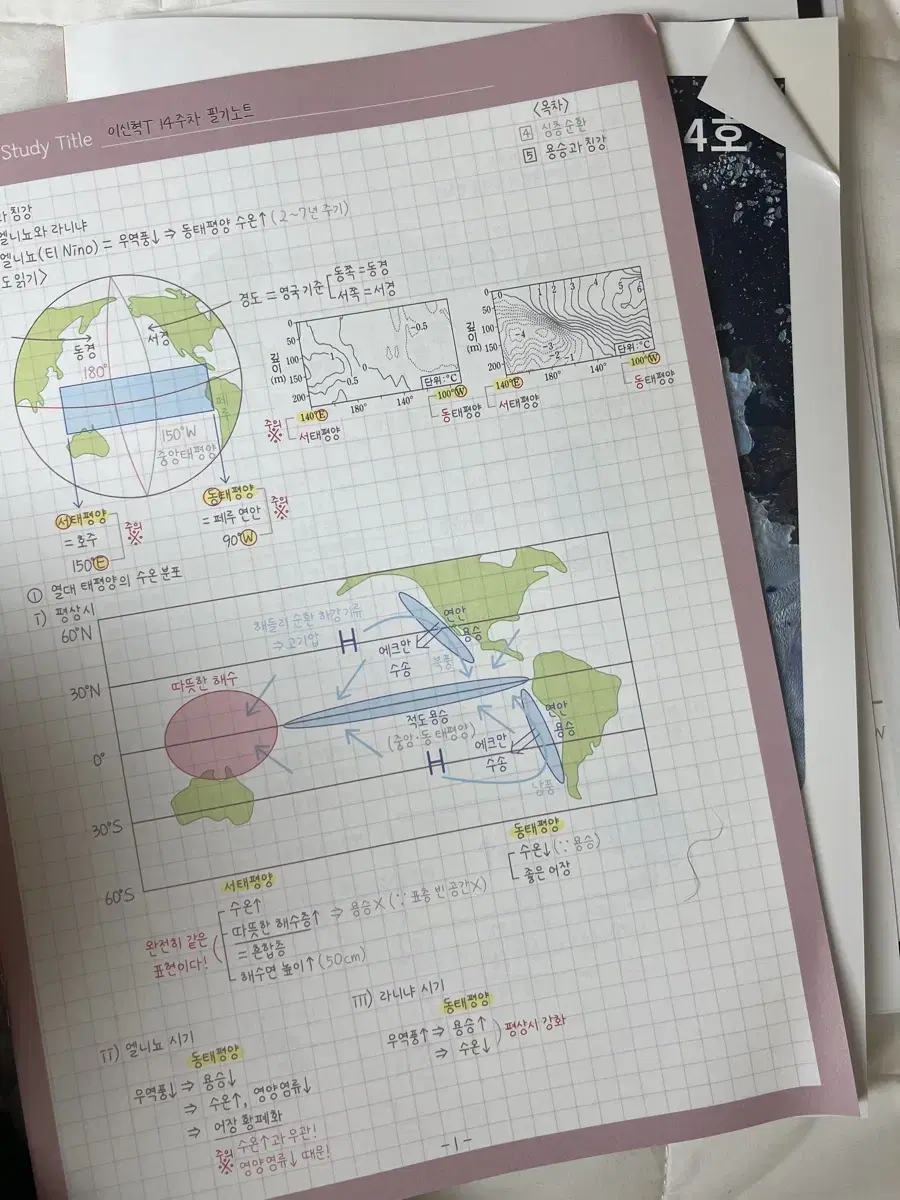 Study Title 이신혁T 14주차 필기노트
<목차>
4 심층순환
5 용승과 침강
과 침강
엘니뇨와 라니냐
엘니뇨(El Nino) = 무역풍↓ ⇒ 동태평양 수온↑ (2~7년 주기)
도 읽기>
경도 = 영국 기준
동쪽 = 동경
서쪽 = 서경
동경
서경
180°
페루
150°W
중앙태평양
0
50
100
150
200
깊이
(m)
-0.5
0
1
0.5
0
단위:℃
140°E
180°
140°
100°W
주의
※
서태평양
동태평양
0
50
100
150
200
깊이
(m)
0
1
2
3
4
5
6
-4
-3
-2
-1
단위:℃
140°E
180°
140°
100°W
서태평양
동태평양
서태평양
= 호주
150°E
주의
※
동태평양
= 페루 연안
90°W
주의
※
① 열대 태평양의 수온 분포
i) 평상시
60°N
30°N
0°
30°S
60°S
해들리 순환 하강기류
⇒ 고기압
H
에크만
수송
연안
용승
북풍
따뜻한 해수
적도용승
(중앙·동태평양)
H
에크만
수송
연안
용승
남풍
동태평양
수온↓ (∵ 용승)
좋은 어장
서태평양
수온↑
따뜻한 해수층↑ ⇒ 용승X (∵ 표층 빈 공간X)
= 혼합층
해수면 높이↑ (50cm)
완전히 같은
표현이다!
ii) 엘니뇨 시기
동태평양
무역풍↓ ⇒ 용승↓
⇒ 수온↑, 영양염류↓
⇒ 어장 황폐화
주의
※
수온↑과 무관!
영양염류↓ 때문!
iii) 라니냐 시기
동태평양
무역풍↑ ⇒ 용승↑
⇒ 수온↓
평상시 강화
-1-
4호
N